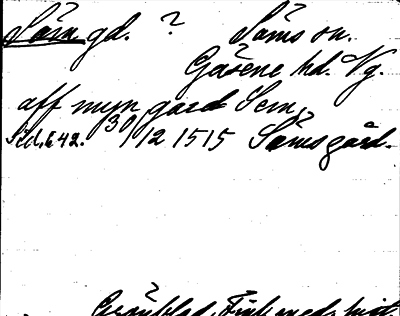 Säm gd. ? Säms sn.
Gäsene hd. Vg.
aff myn gard Sem,
30/12 1515 Sämsgård.